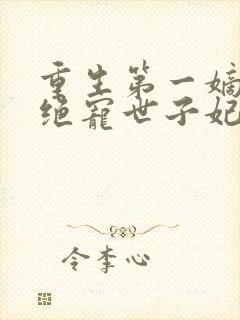 重生第一嫡
绝宠世子妃
令李心